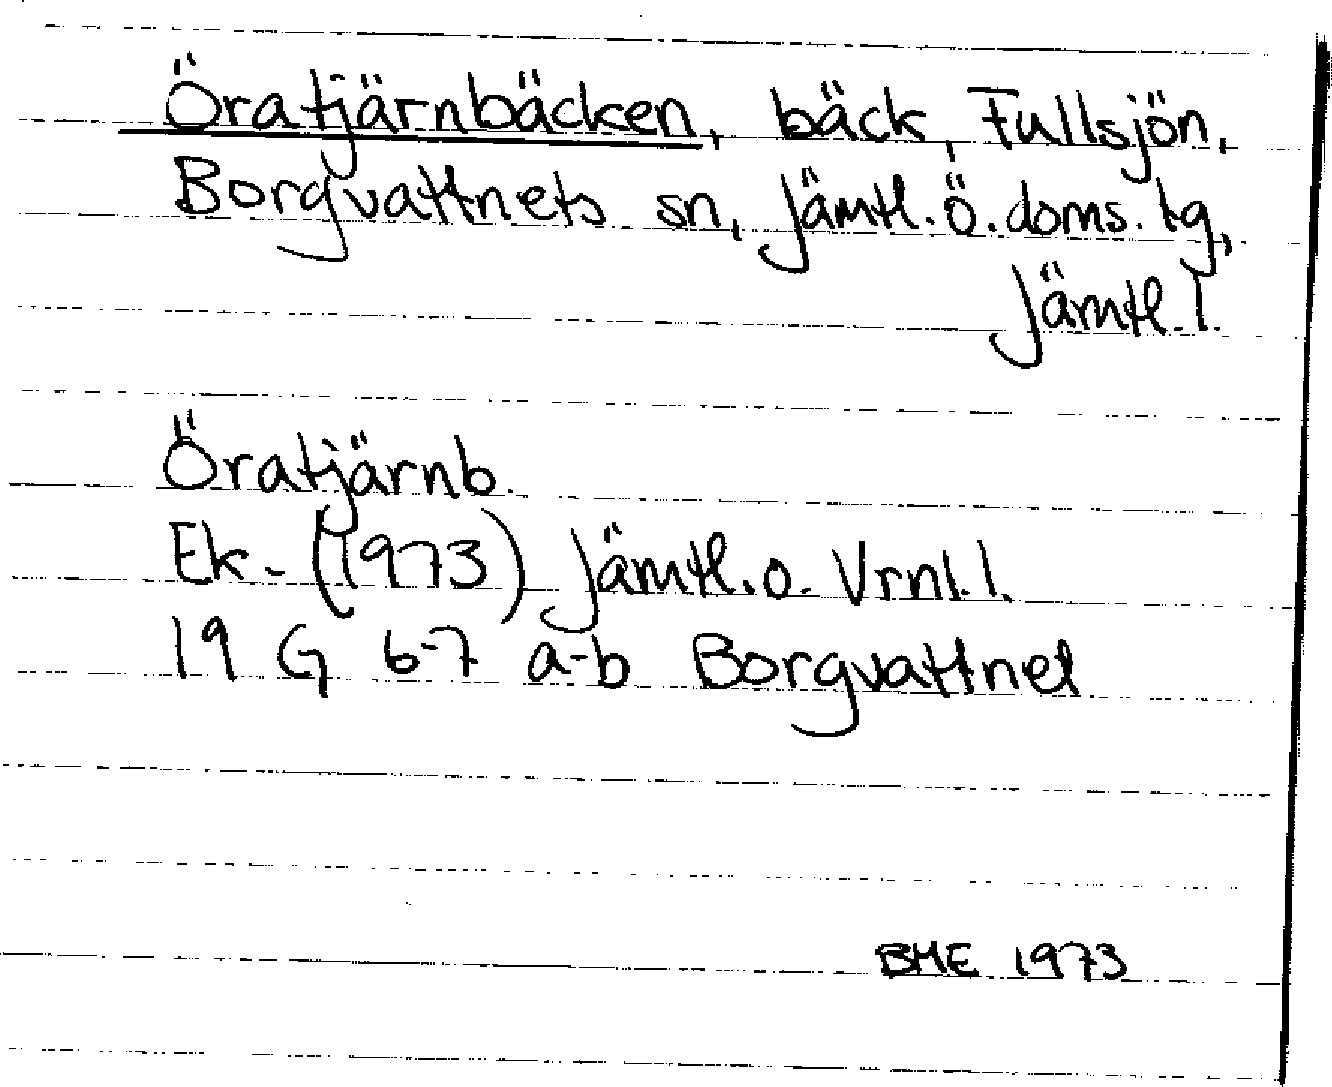 Öratjärnbäcken, bäck, Fullsjön,
Borgvattnets sn, Jämtl.Ö.doms.tg,
Jämtl.l.
Öratjärnb.
Ek. (1973) Jämtl.o. Vrnl.l.
19 G 6-7 a-b Borgvattnet
BME 1973